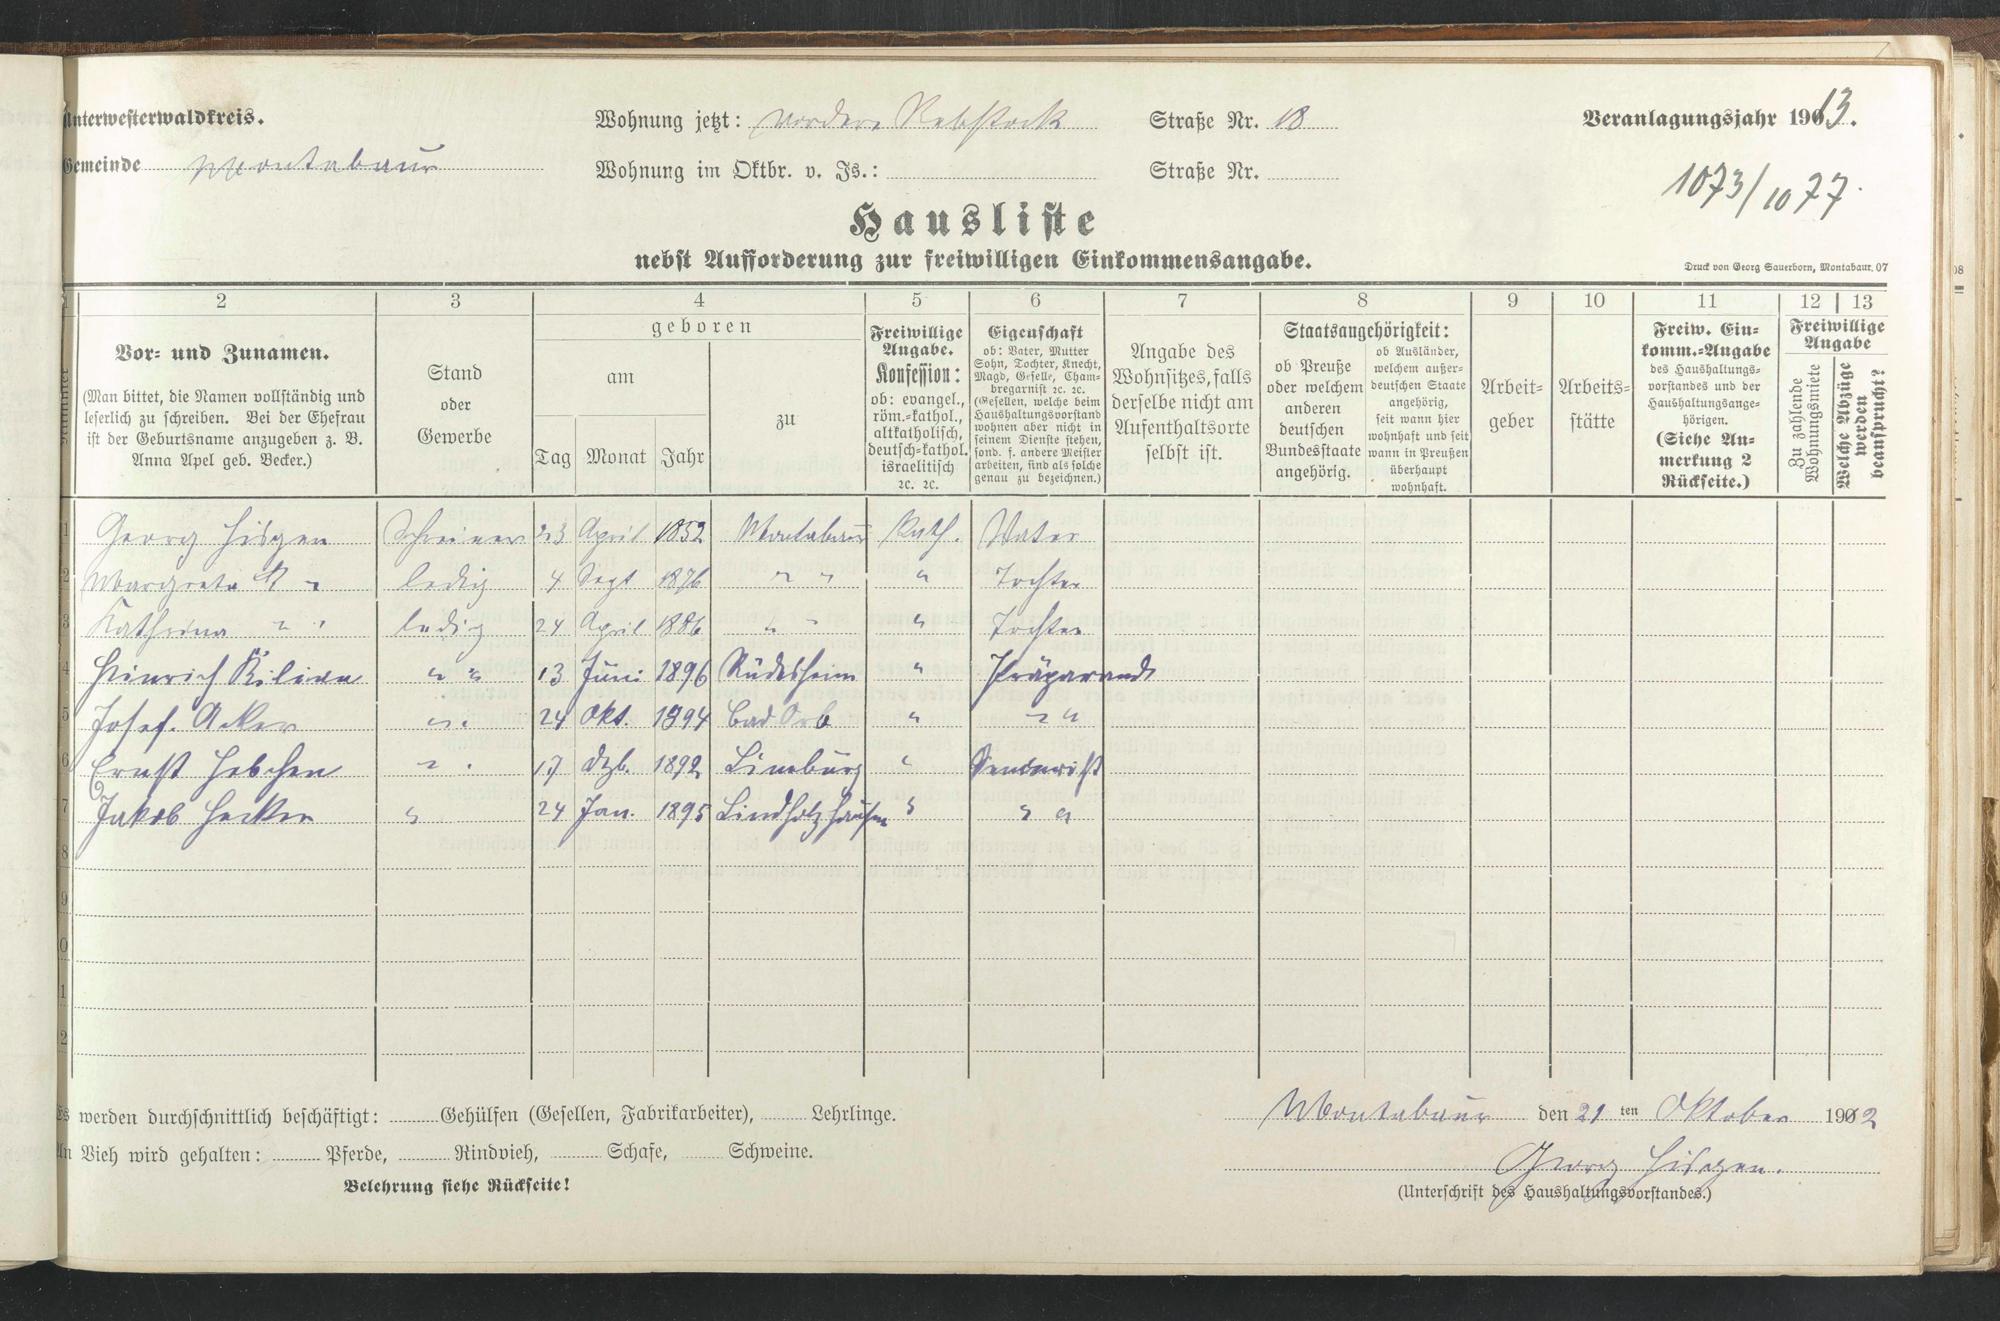 Unterwesterwaldkreis.
Wohnung jetzt: vordere Rebstock Straße Nr. 18
Veranlagungsjahr 1913.
Gemeinde Montabaur
Wohnung im Oktbr. v. Js.: Straße Nr.
1073/1077
Hausliste
nebst Aufforderung zur freiwilligen Einkommensangabe.
Druck von Georg Sauerborn, Montabaur. 07
1 2 3 4 5 6 7 8 9 10 11 12 13
Nummer
Vor- und Zunamen.
(Man bittet, die Namen vollständig und
leserlich zu schreiben. Bei der Ehefrau
ist der Geburtsname anzugeben z. B.
Anna Apel geb. Becker.)
Stand
oder
Gewerbe
geboren
am
Tag Monat Jahr
zu
Freiwillige
Angabe.
Konfession:
ob: evangel.,
röm.-kathol.,
altkatholisch,
deutsch-kathol.
israelitisch
2c. 2c.
Eigenschaft
ob: Vater, Mutter
Sohn, Tochter, Knecht,
Magd, Geselle, Cham-
bregarnist 2c. 2c.
(Gesellen, welche beim
Haushaltungsvorstand
wohnen aber nicht in
seinem Dienste stehen,
sond. f. andere Meister
arbeiten, sind als solche
genau zu bezeichnen.)
Angabe des
Wohnsitzes, falls
derselbe nicht am
Aufenthaltsorte
selbst ist.
Staatsangehörigkeit:
ob Preuße
oder welchem
anderen
deutschen
Bundesstaate
angehörig.
ob Ausländer,
welchem außer-
deutschen Staate
angehörig,
seit wann hier
wohnhaft und seit
wann in Preußen
überhaupt
wohnhaft.
Arbeit-
geber
Arbeits-
stätte
Freiw. Ein-
komm.-Angabe
des Haushaltungs-
vorstandes und der
Haushaltungsange-
hörigen.
(Siehe An-
merkung 2
Rückseite.)
Freiwillige
Angabe
Zu zahlende
Wohnungsmiete
Welche Abzüge
werden
beansprucht?
1 Georg Hisgen Schreiner 23 April 1852 Montabaur Kath. Vater
2 Margreta " " ledig 4 Sept 1876 " " " Tochter
3 Kathrina " " ledig 24 April 1886 " " " Tochter
4 Heinrich Kilian " " 13 Juni 1896 Rüdesheim " Präparand
5 Josef Acker " " 24 Okt. 1894 Bad Orb " " "
6 Ernst Hebchen " " 17 Dzb. 1892 Limburg " Seminarist
7 Jakob Hecker " 24 Jan. 1895 Lindholzhausen " " "
8
9
0
1
2
Es werden durchschnittlich beschäftigt: Gehülfen (Gesellen, Fabrikarbeiter), Lehrlinge.
An Vieh wird gehalten: Pferde, Rindvieh, Schafe, Schweine.
Belehrung siehe Rückseite!
Montabaur den 21 ten Oktober 1912
Georg Hisgen.
(Unterschrift des Haushaltungsvorstandes.)